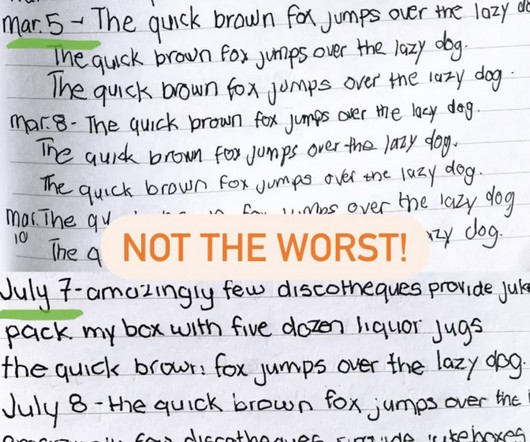 Mar. 5 - The quick brown fox jumps over the lazy do
The quick brown fox jumps over the lazy dog.
The quick brown fox jumps over the lazy dog.
Mar. 8 - The quick brown fox jumps over the lacy dog.
The quick brown fox jumps over the lazy dog.
The quick brown fox jumps over the lazy dog.
Mar. The qu jumps over the lazy dog
10 The q zy dog.
NOT THE WORST!
July 7 - amazingly few discotheques provide juke
pack my box with five dozen liquor jugs
the quick brown fox jumps over the lazy dog.
July 8 - the quick brown fox jumps over the l
discotheques jukeboxes